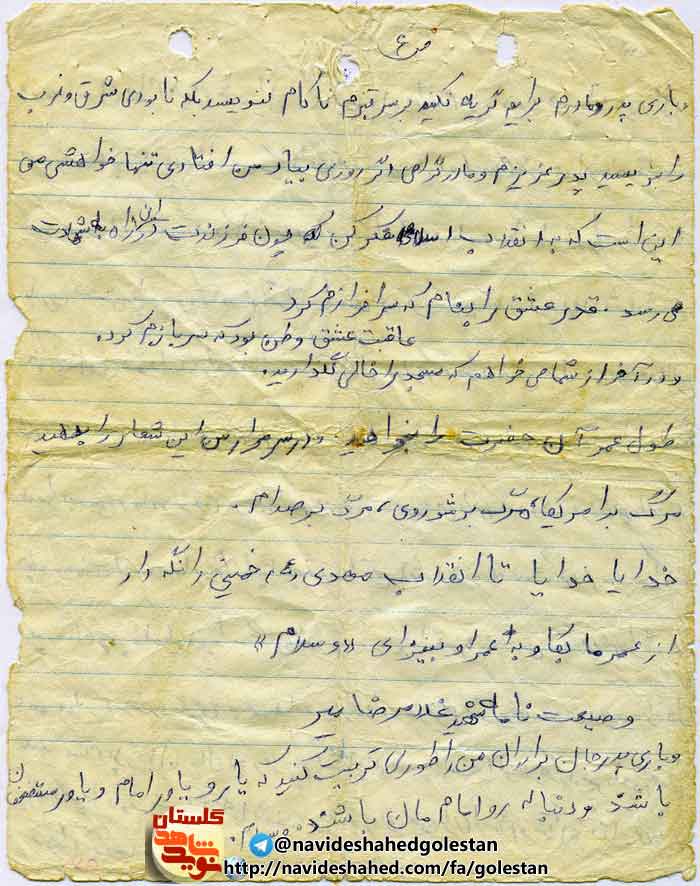 ص ۶
وباری پدر ومادرم برایم گریه نکنید بر سر قبرم ناکام ننویسید بلکه نابودی شرق و غرب
را بنویسید پدر عزیزم ومادر گرامی اگر روزی بیاد من افتادی تنها خواهشی می
این است که به انقلاب اسلامی فکر کن که چون فرزندت در راه به شهادت
می رسد . قدر عشق را بنام که سرافرازم کرد
عاقبت عشق وطن بود که سربازم کرد.
و در آخر از شما می خواهم که مسجد را خالی نگذارید.
طول عمر آن حضرت را بخواهید ودر سر مزار من این شعار را بدهید
مرگ بر امریکا، مرگ بر شوروی، مرگ بر صدام .
خدایا خدایا تا انقلاب مهدی (عج) خمینی را نگه دار
از عمر ما بکاه وبه عمر او بیفزای «وسلام»
وصیعت نامه شهید غلامرضا میر
وباری پدرجان برادران من را طوری تربیت کنید که یار و یاور امام و یاور مستضعفان
باشند ودنباله رو امام مان باشند . والسلام.
گلستان
نوید شاهد
@navideshahedgolestan
http://navideshahed.com/fa/golestan